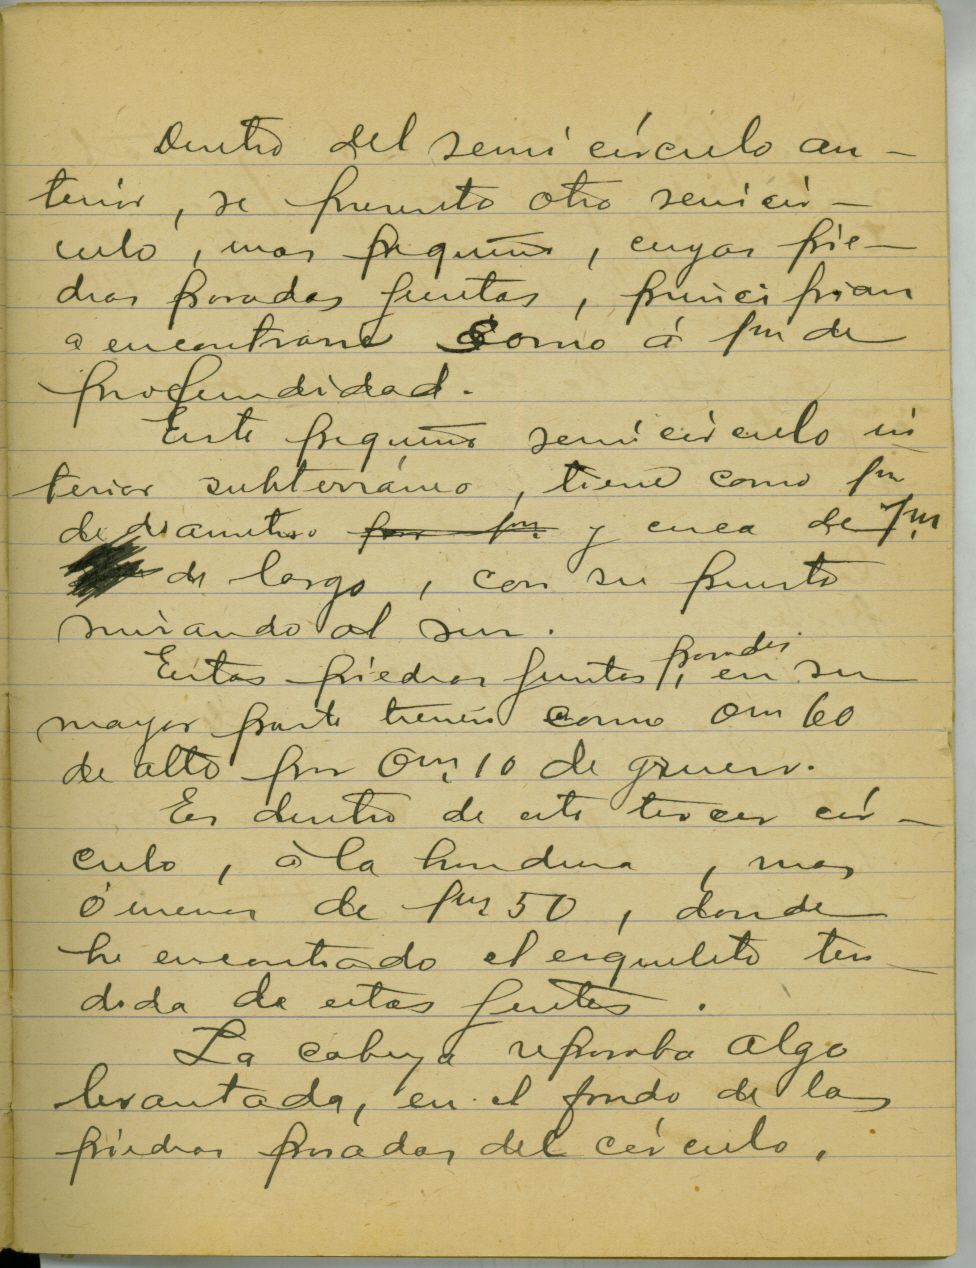 Dentro del semi círculo an-
terior, se presenta otro semicír-
culo, mas pequeño, cuyas pie-
dras paradas juntas, principian
a encontrarse como á 1m de
profundidad.
Este pequeño semicírculo in
terior subterráneo, tiene como 1m
de diametro por 1m. y cerca de 1m
de largo, con su puerta
mirando al sur.
Estas piedras juntas paradas, en su
mayor parte tienen como 0m 60
de alto por 0m, 10 de grueso.
Es dentro de este tercer cír-
culo, á la hondura, mas
ó menos de 1m 50, donde
he encontrado el esqueleto ten-
dido de estas gentes.
La cabeza reposaba algo
levantada, en el fondo de las
piedras paradas del círculo,